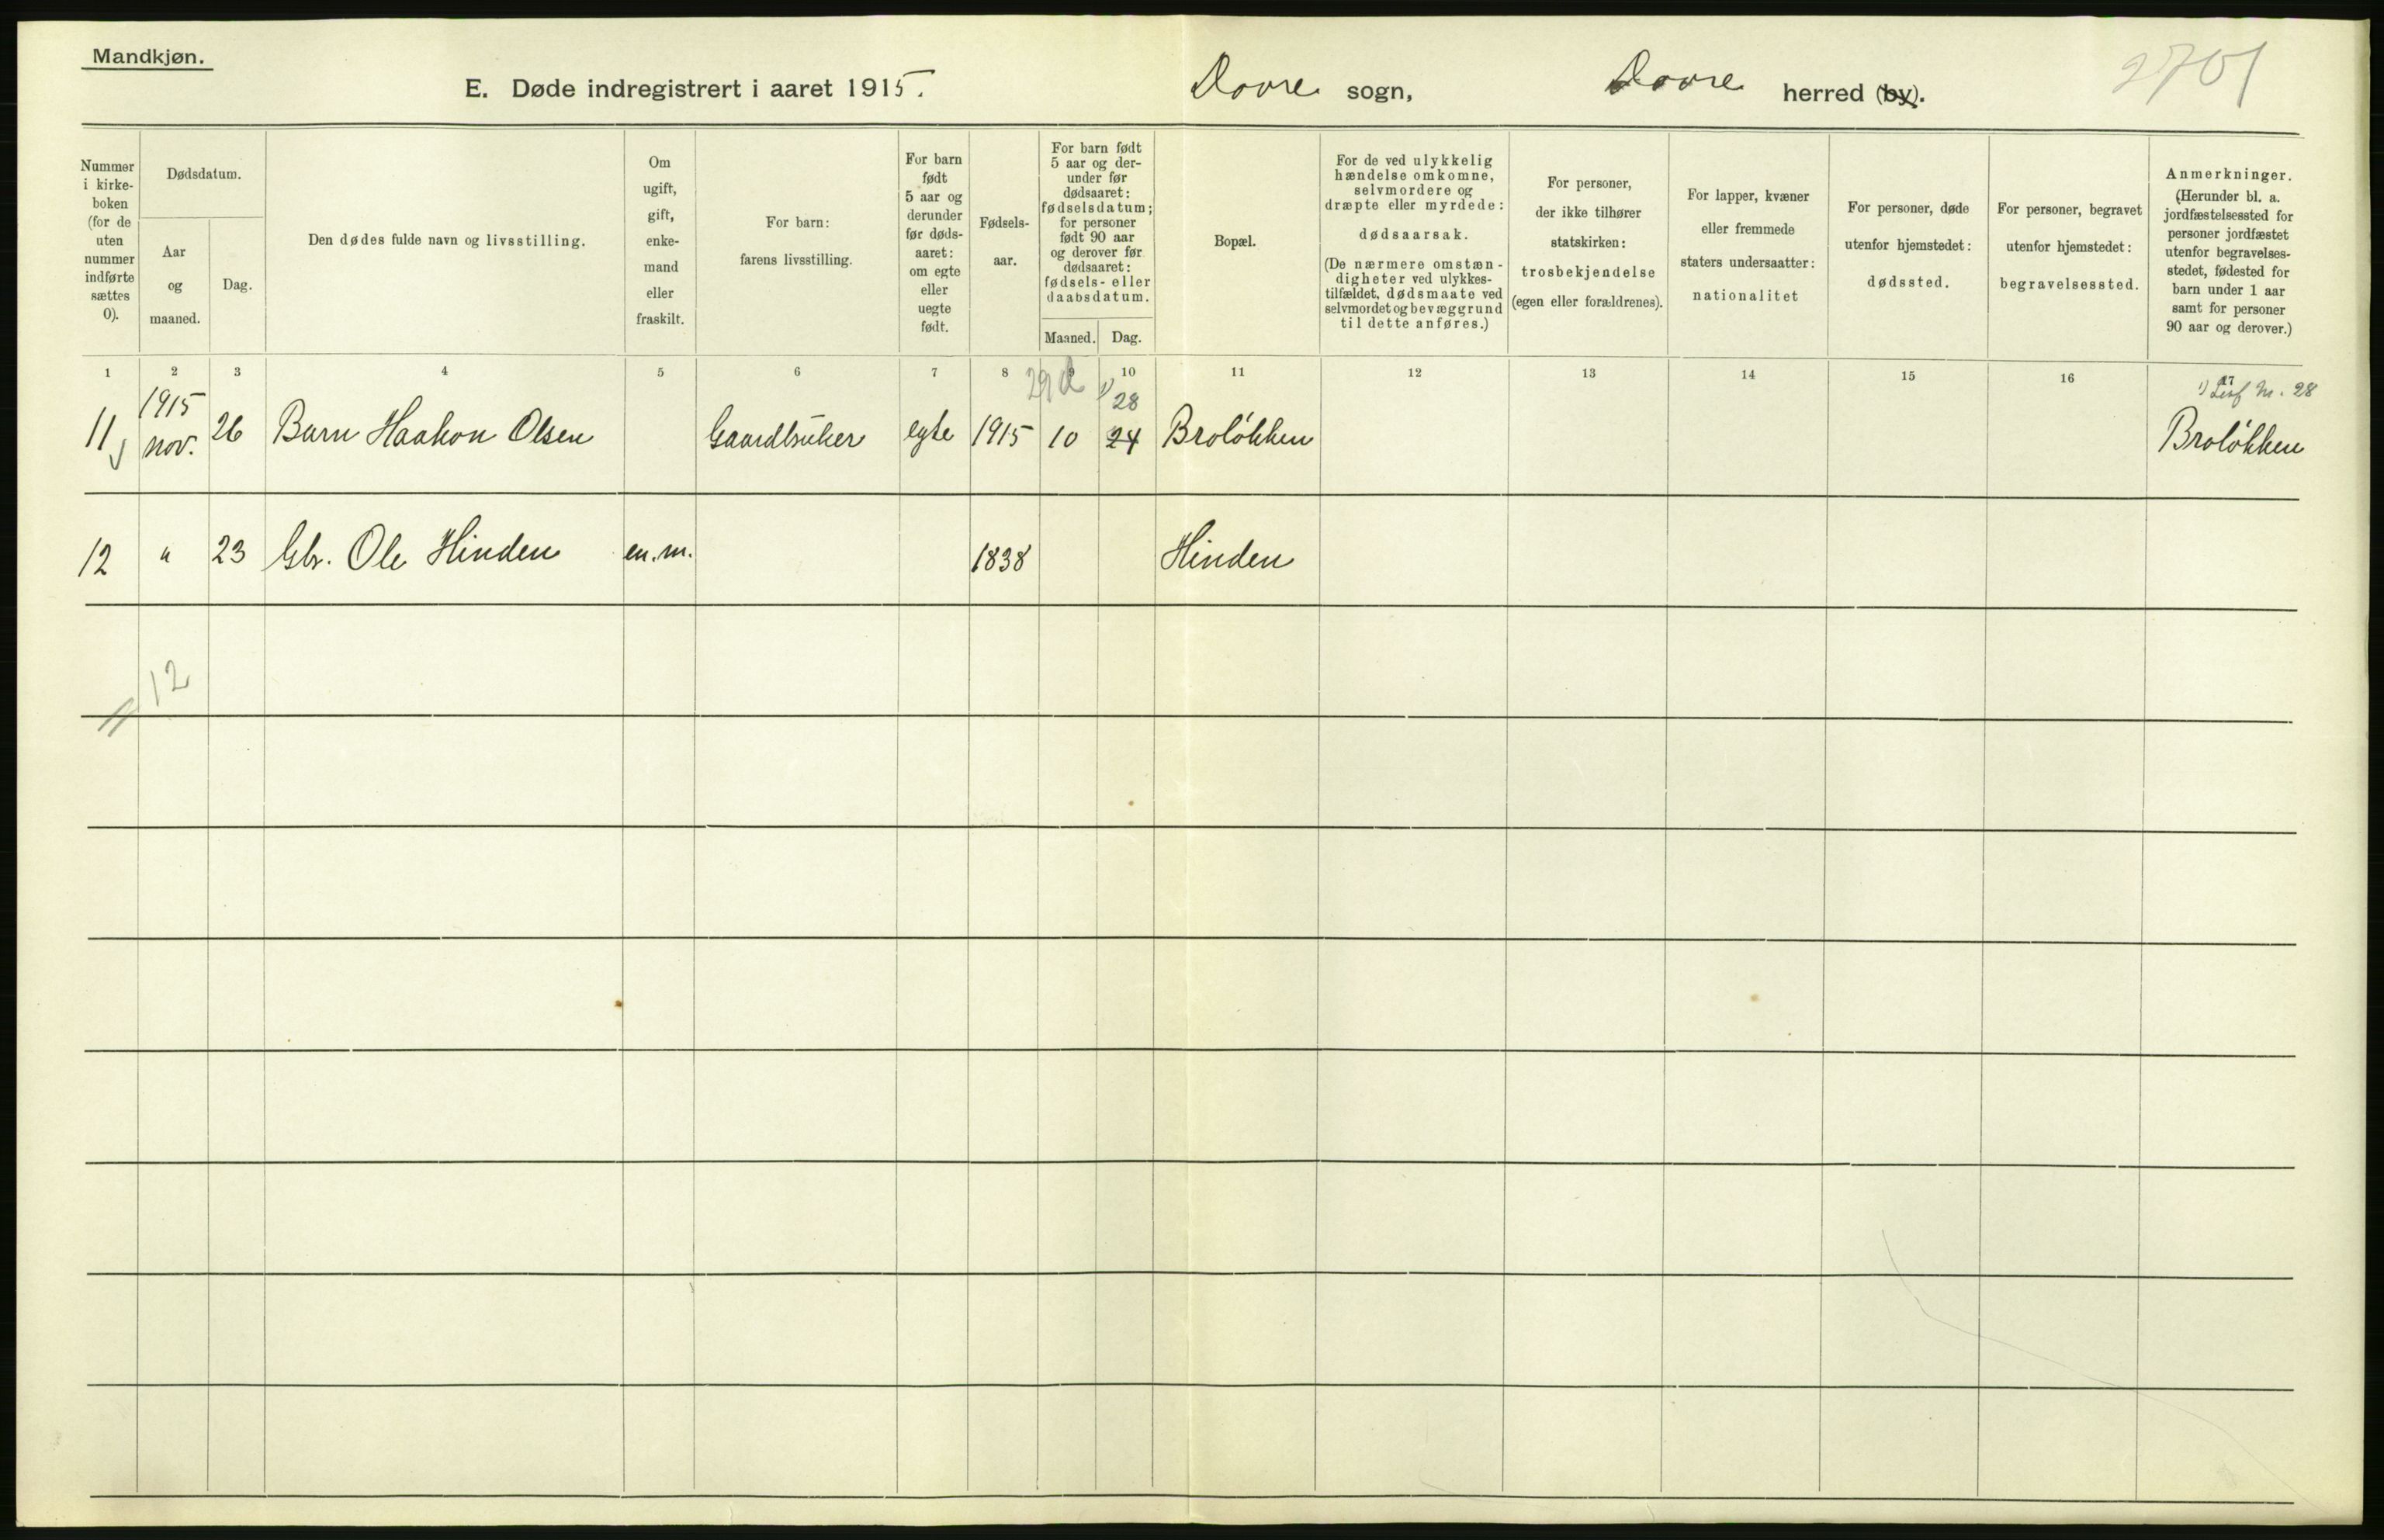 Mandkjøn.
E. Døde indregistrert i aaret 1915. Dovre sogn, Dovre herred (by).
2701
Nummer i kirke-boken (for de uten nummer indførte sættes 0).
Dødsdatum.
Aar og maaned.
Dag.
Den dødes fulde navn og livsstilling.
Om ugift, gift, enke-mand eller fraskilt.
For barn: farens livsstilling.
For barn født 5 aar og derunder før døds-aaret: om egte eller uegte født.
Fødsels-aar.
For barn født 5 aar og der-under før dødsaaret: fødselsdatum; for personer født 90 aar og derover før dødsaaret: fødsels- eller daabsdatum.
Maaned.
Dag.
Bopæl.
For de ved ulykkelig hændelse omkomne, selvmordere og dræpte eller myrdede: dødsaarsak.
(De nærmere omstæn-digheter ved ulykkes-tilfældet, dødsmaate ved selvmordet og bevæggrund til dette anføres.)
For personer, der ikke tilhører statskirken: trosbekjendelse (egen eller forældrenes).
For lapper, kvæner eller fremmede staters undersaatter: nationalitet
For personer, døde utenfor hjemstedet: dødssted.
For personer, begravet utenfor hjemstedet: begravelsessted.
Anmerkninger.
(Herunder bl. a. jordfæstelsessted for personer jordfæstet utenfor begravelses-stedet, fødested for barn under 1 aar samt for personer 90 aar og derover.)
1 2 3 4 5 6 7 8 9 10 11 12 13 14 15 16 17
29 d 1) 28 1) M. 28
11 1915 nov. 26 Barn Haakon Olsen Gaardbruker egte 1915 10 24 Broløkken Broløkken
12 " 23 Gbr. Ole Hinden en.m. 1838 Hinden
12